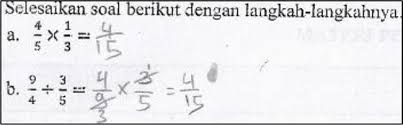 Selesaikan soal berikut dengan langkah-langkahnya.
a. 4/5 × 1/3 = 4/15
b. 9/4 ÷ 3/5 = 4/9 3 × 3/5 = 4/15